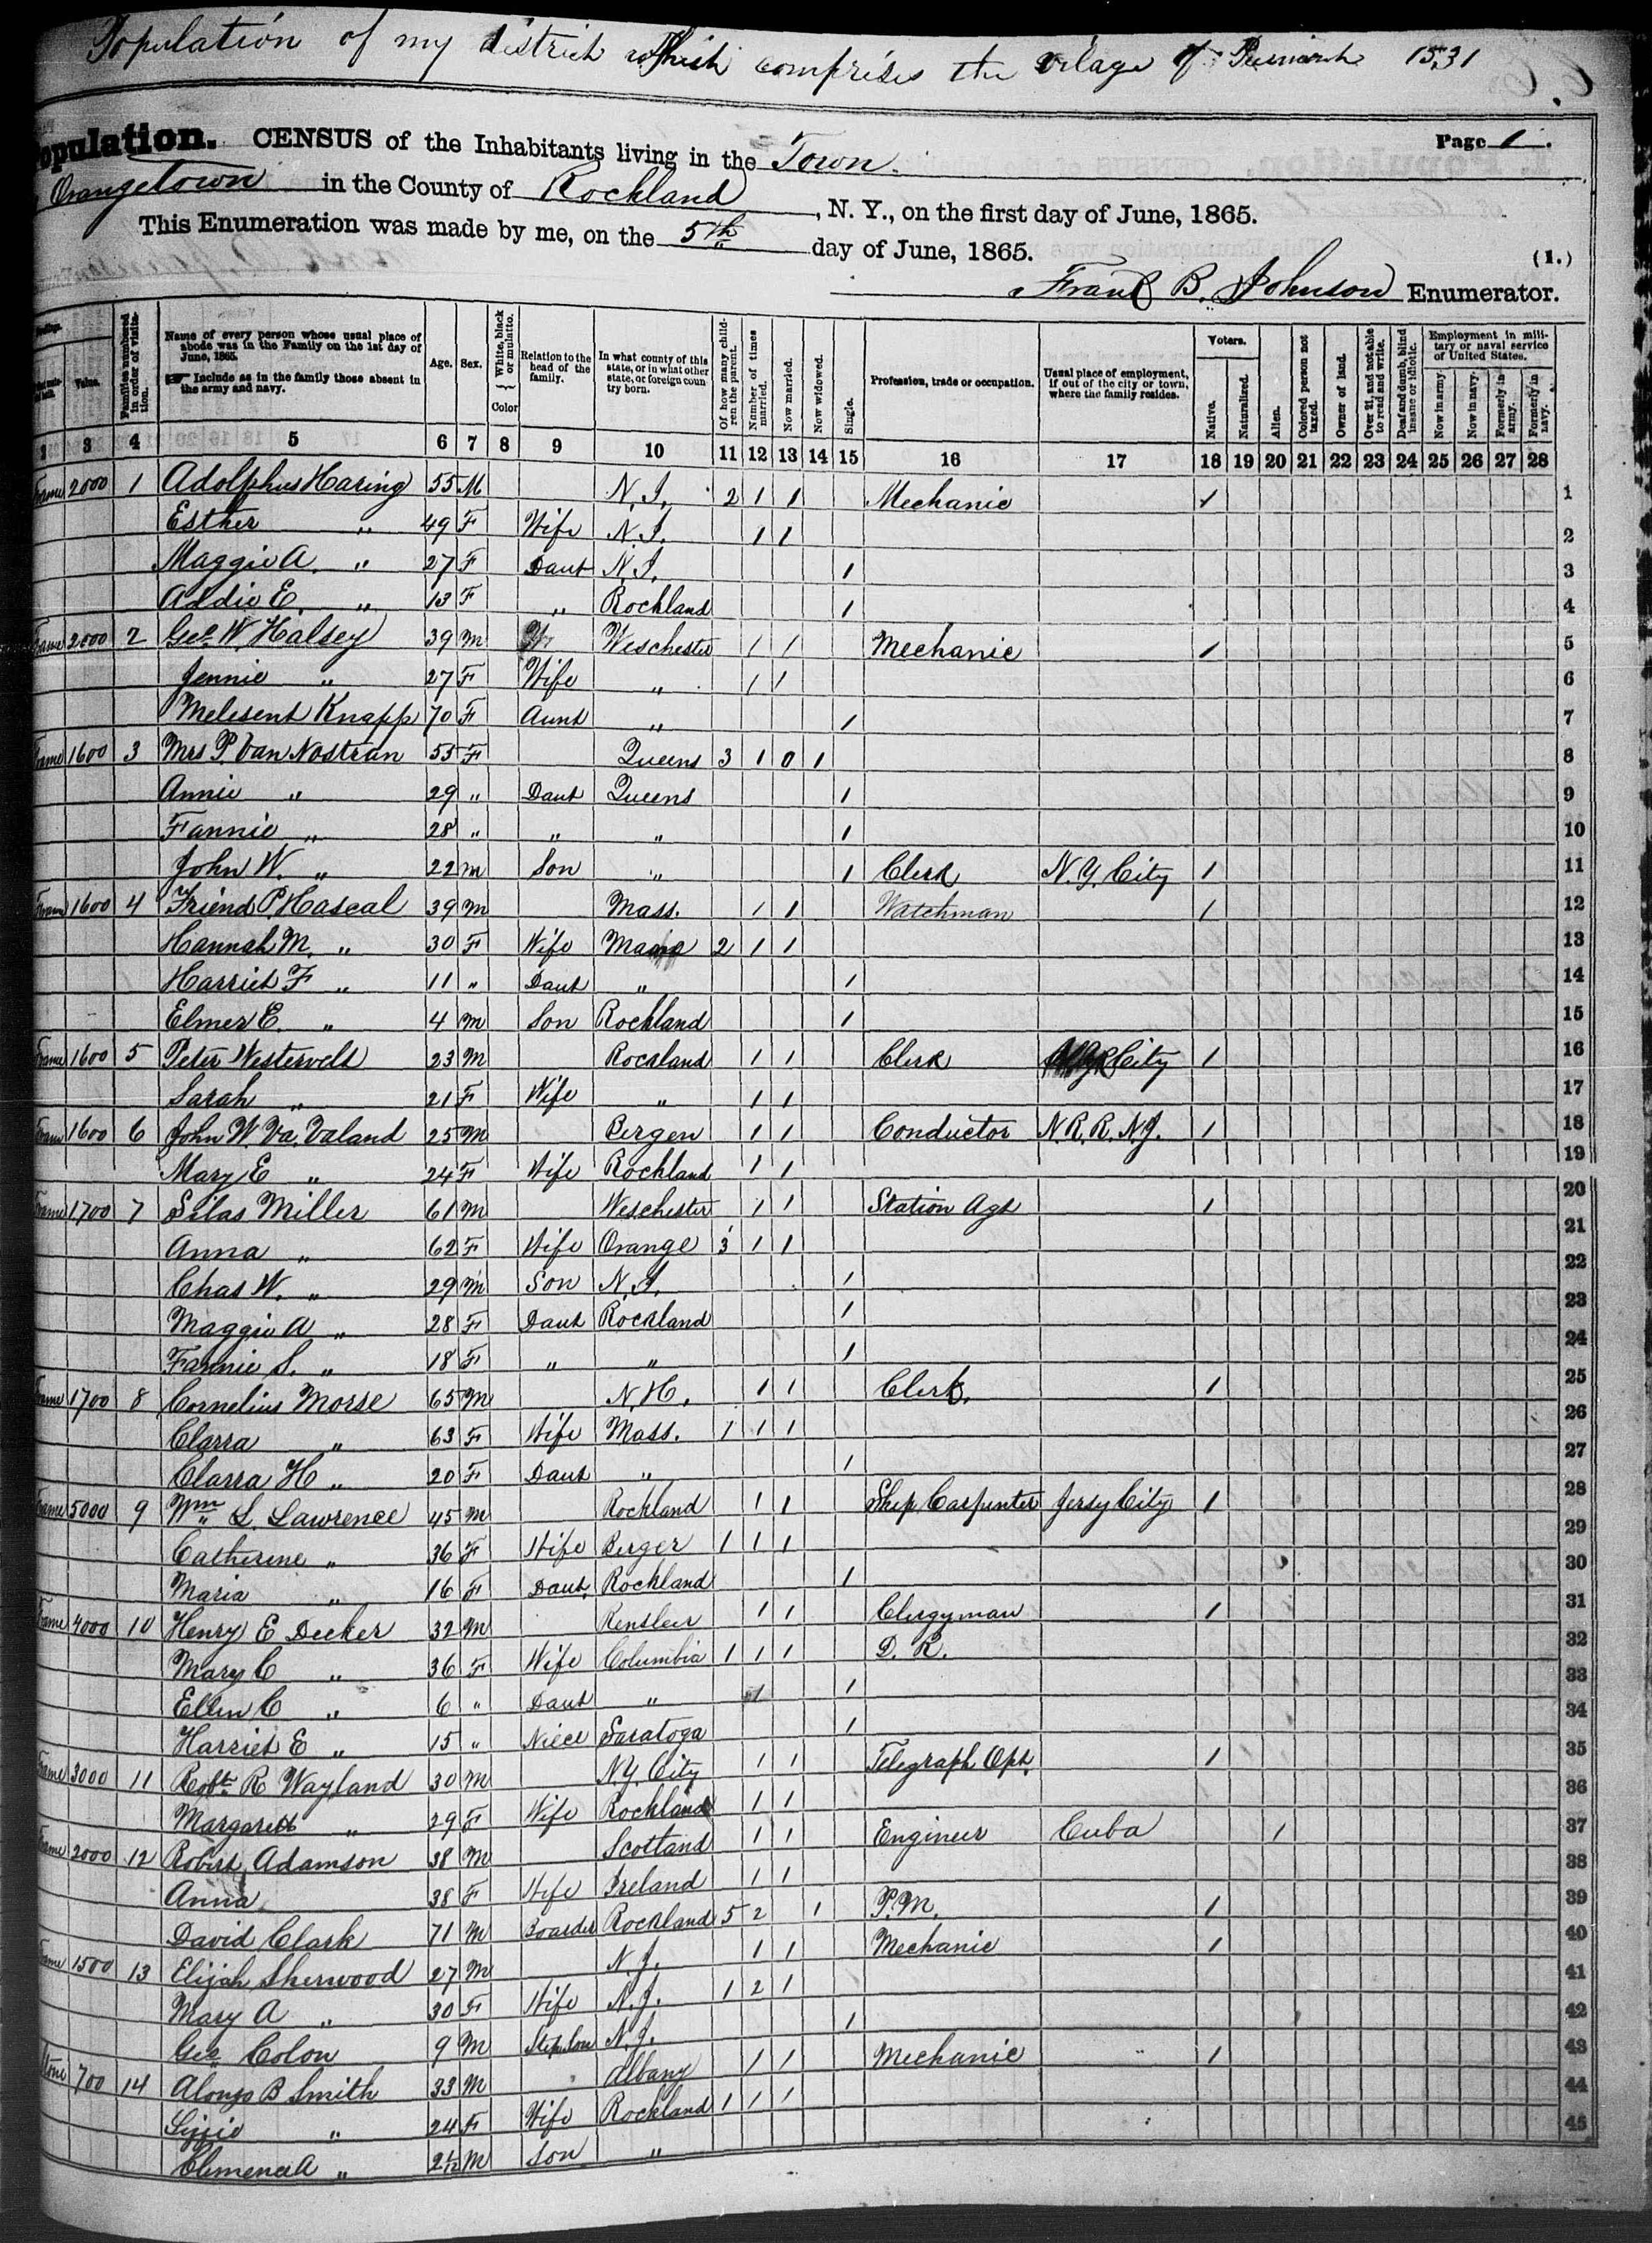 Population of my district which comprises the vilage of Piermont 1531
Population. CENSUS of the Inhabitants living in the Town.
Page 1.
Orangetown in the County of Rockland, N. Y., on the first day of June, 1865.
This Enumeration was made by me, on the 5th day of June, 1865.
(1.)
Frank B. Johnson Enumerator.
Value. Families numbered in order of visitation. Name of every person whose usual place of abode was in the Family on the 1st day of June, 1865. ☞ Include as in the family those absent in the army and navy. Age. Sex. White, black or mulatto. Color Relation to the head of the family. In what county of this state, or in what other state, or foreign country born. Of how many children the parent. Number of times married. Now married. Now widowed. Single. Profession, trade or occupation. Usual place of employment, if out of the city or town, where the family resides. Voters. Native. Naturalized. Alien. Colored person not taxed. Owner of land. Over 21, and not able to read and write. Deaf and dumb, blind insane or idiotic. Employment in military or naval service of United States. Now in army. Now in navy. Formerly in army. Formerly in navy.
3 4 5 6 7 8 9 10 11 12 13 14 15 16 17 18 19 20 21 22 23 24 25 26 27 28
Frame 2000 1 Adolphus Haring 55 M N. J. 2 1 1 Mechanic 1 1
Esther " 49 F Wife N. J. 1 1 2
Maggie A. " 27 F Daut N. J. 1 3
Addie E. " 13 F " Rockland 1 4
Frame 2000 2 Geo. W. Halsey 39 M Weschester 1 1 Mechanic 1 5
Jennie " 27 F Wife " 1 1 6
Melesent Knapp 70 F Aunt " 1 7
Frame 1600 3 Mrs P. Van Nostran 55 F Queens 3 1 0 1 8
Annie " 29 " Daut Queens 1 9
Fannie " 28 " " " 1 10
John W. " 22 M Son " 1 Clerk N. Y. City 1 11
Frame 1600 4 Friend P. Hascal 39 M Mass. 1 1 Watchman 1 12
Hannah M. " 30 F Wife 2 1 1 13
Harriet F " 11 " Daut " 1 14
Elmer E. " 4 M Son Rockland 1 15
Frame 1600 5 Peter Westervelt 23 M Rockland 1 1 Clerk City 1 16
Sarah " 21 F Wife " 1 1 17
Frame 1600 6 John W. Va. Valand 25 M Bergen 1 1 Conductor N. R. R. N. J. 1 18
Mary E " 24 F Wife Rockland 1 1 19
Frame 1700 7 Silas Miller 61 M Weschester 1 1 Station Agt 1 20
Anna " 62 F Wife Orange 3 1 1 21
Chas W. " 29 M Son N. J. 1 22
Maggie A " 28 F Daut Rockland 1 23
Fannie S. " 18 F " " 1 24
Frame 1700 8 Cornelius Morse 65 M N. H. 1 1 Clerk. 1 25
Clarra " 63 F Wife Mass. 1 1 1 26
Clarra H " 20 F Daut " 1 27
Frame 5000 9 Wm. S. Lawrence 45 M Rockland 1 1 Ship Carpenter Jersy City 1 28
Catherine " 36 F Wife Berger 1 1 1 29
Maria " 16 F Daut Rockland 1 30
Frame 4000 10 Henry E Decker 32 M Renslear 1 1 Clergyman 1 31
Mary C " 36 F Wife Columbia 1 1 1 D. R. 32
Ellen C " 6 " Daut " 1 33
Harriet E " 15 " Niece Saratoga 1 34
Frame 3000 11 Robt. R Wayland 30 M N.Y. City 1 1 Telegraph Opt. 1 35
Margarett " 29 F Wife Rockland 1 1 36
Frame 2000 12 Robert Adamson 38 M Scotland 1 1 Engineer Cuba 1 37
Anna 38 F Wife Ireland 1 1 38
David Clark 71 M Boarder Rockland 5 2 1 P.M. 1 39
Frame 1500 13 Elijah Sherwood 27 M N. J. 1 1 Mechanic 1 40
Mary A " 30 F Wife N. J. 1 2 1 41
Geo. Colon 9 M Stepson N. J. 1 42
Stone 700 14 Alonzo B Smith 33 M Albany 1 1 Mechanic 1 43
Lizzie " 24 F Wife Rockland 1 1 1 44
Clemence A " M Son " 45